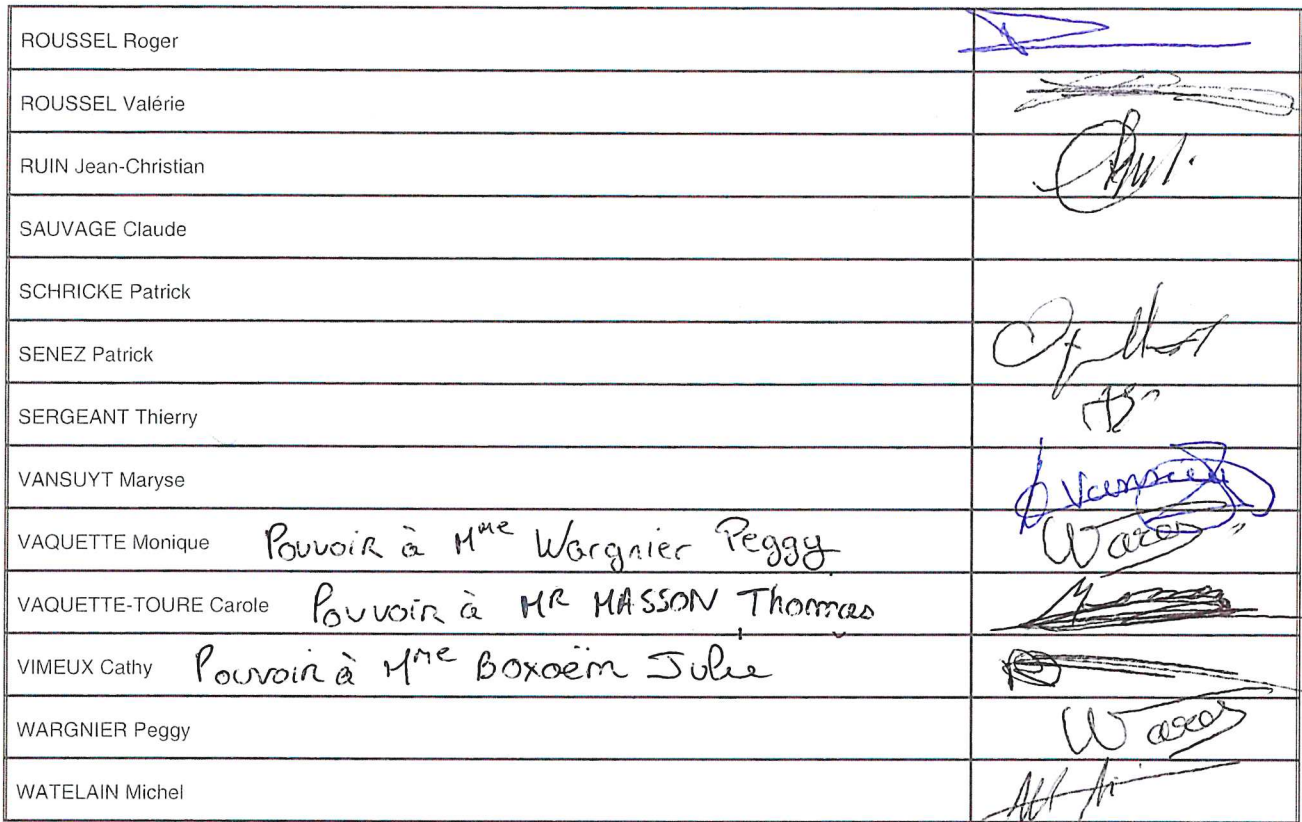 ROUSSEL Roger
ROUSSEL Valérie
RUIN Jean-Christian
SAUVAGE Claude
SCHRICKE Patrick
SENEZ Patrick
SERGEANT Thierry
VANSUYT Maryse
VAQUETTE Monique Pouvoir à Mme Wargnier Peggy
VAQUETTE-TOURE Carole Pouvoir à MR MASSON Thomas
VIMEUX Cathy Pouvoir à Mme Boxoëm Julie
WARGNIER Peggy
WATELAIN Michel